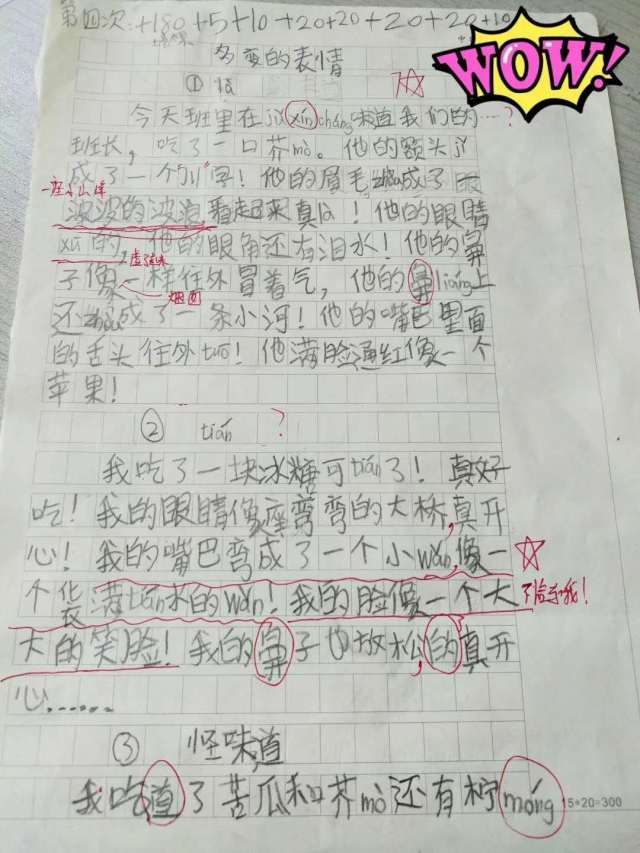 第四次:+180+5+10+20+20+20+20+10
多变的表情
WOW!
①
今天班里在 xín cháng 味道我们的…?
班长,吃了一口芥mò。他的额头
成了一个"川"字!他的眉毛 成了
一座小山峰
波波的波浪,看起来真 !他的眼睛
xū的,他的眼角还有泪水!他的鼻
子像一样往外冒着气,他的鼻liáng上
烟囱
还 成了一条小河!他的嘴巴里面
的舌头往外tuō!他满脸通红像一个
苹果!
② tián ?
我吃了一块冰糖可tián了!真好
吃!我的眼睛像座弯弯的大桥,真开
心!我的嘴巴弯成了一个小wǎn,像一
个 满táng水的wǎn!我的脸像一个大
大的笑脸!我的鼻子也放松,的真开
心……
③ 怪味道
我吃道了苦瓜和芥mò还有柠móng
15×20=300